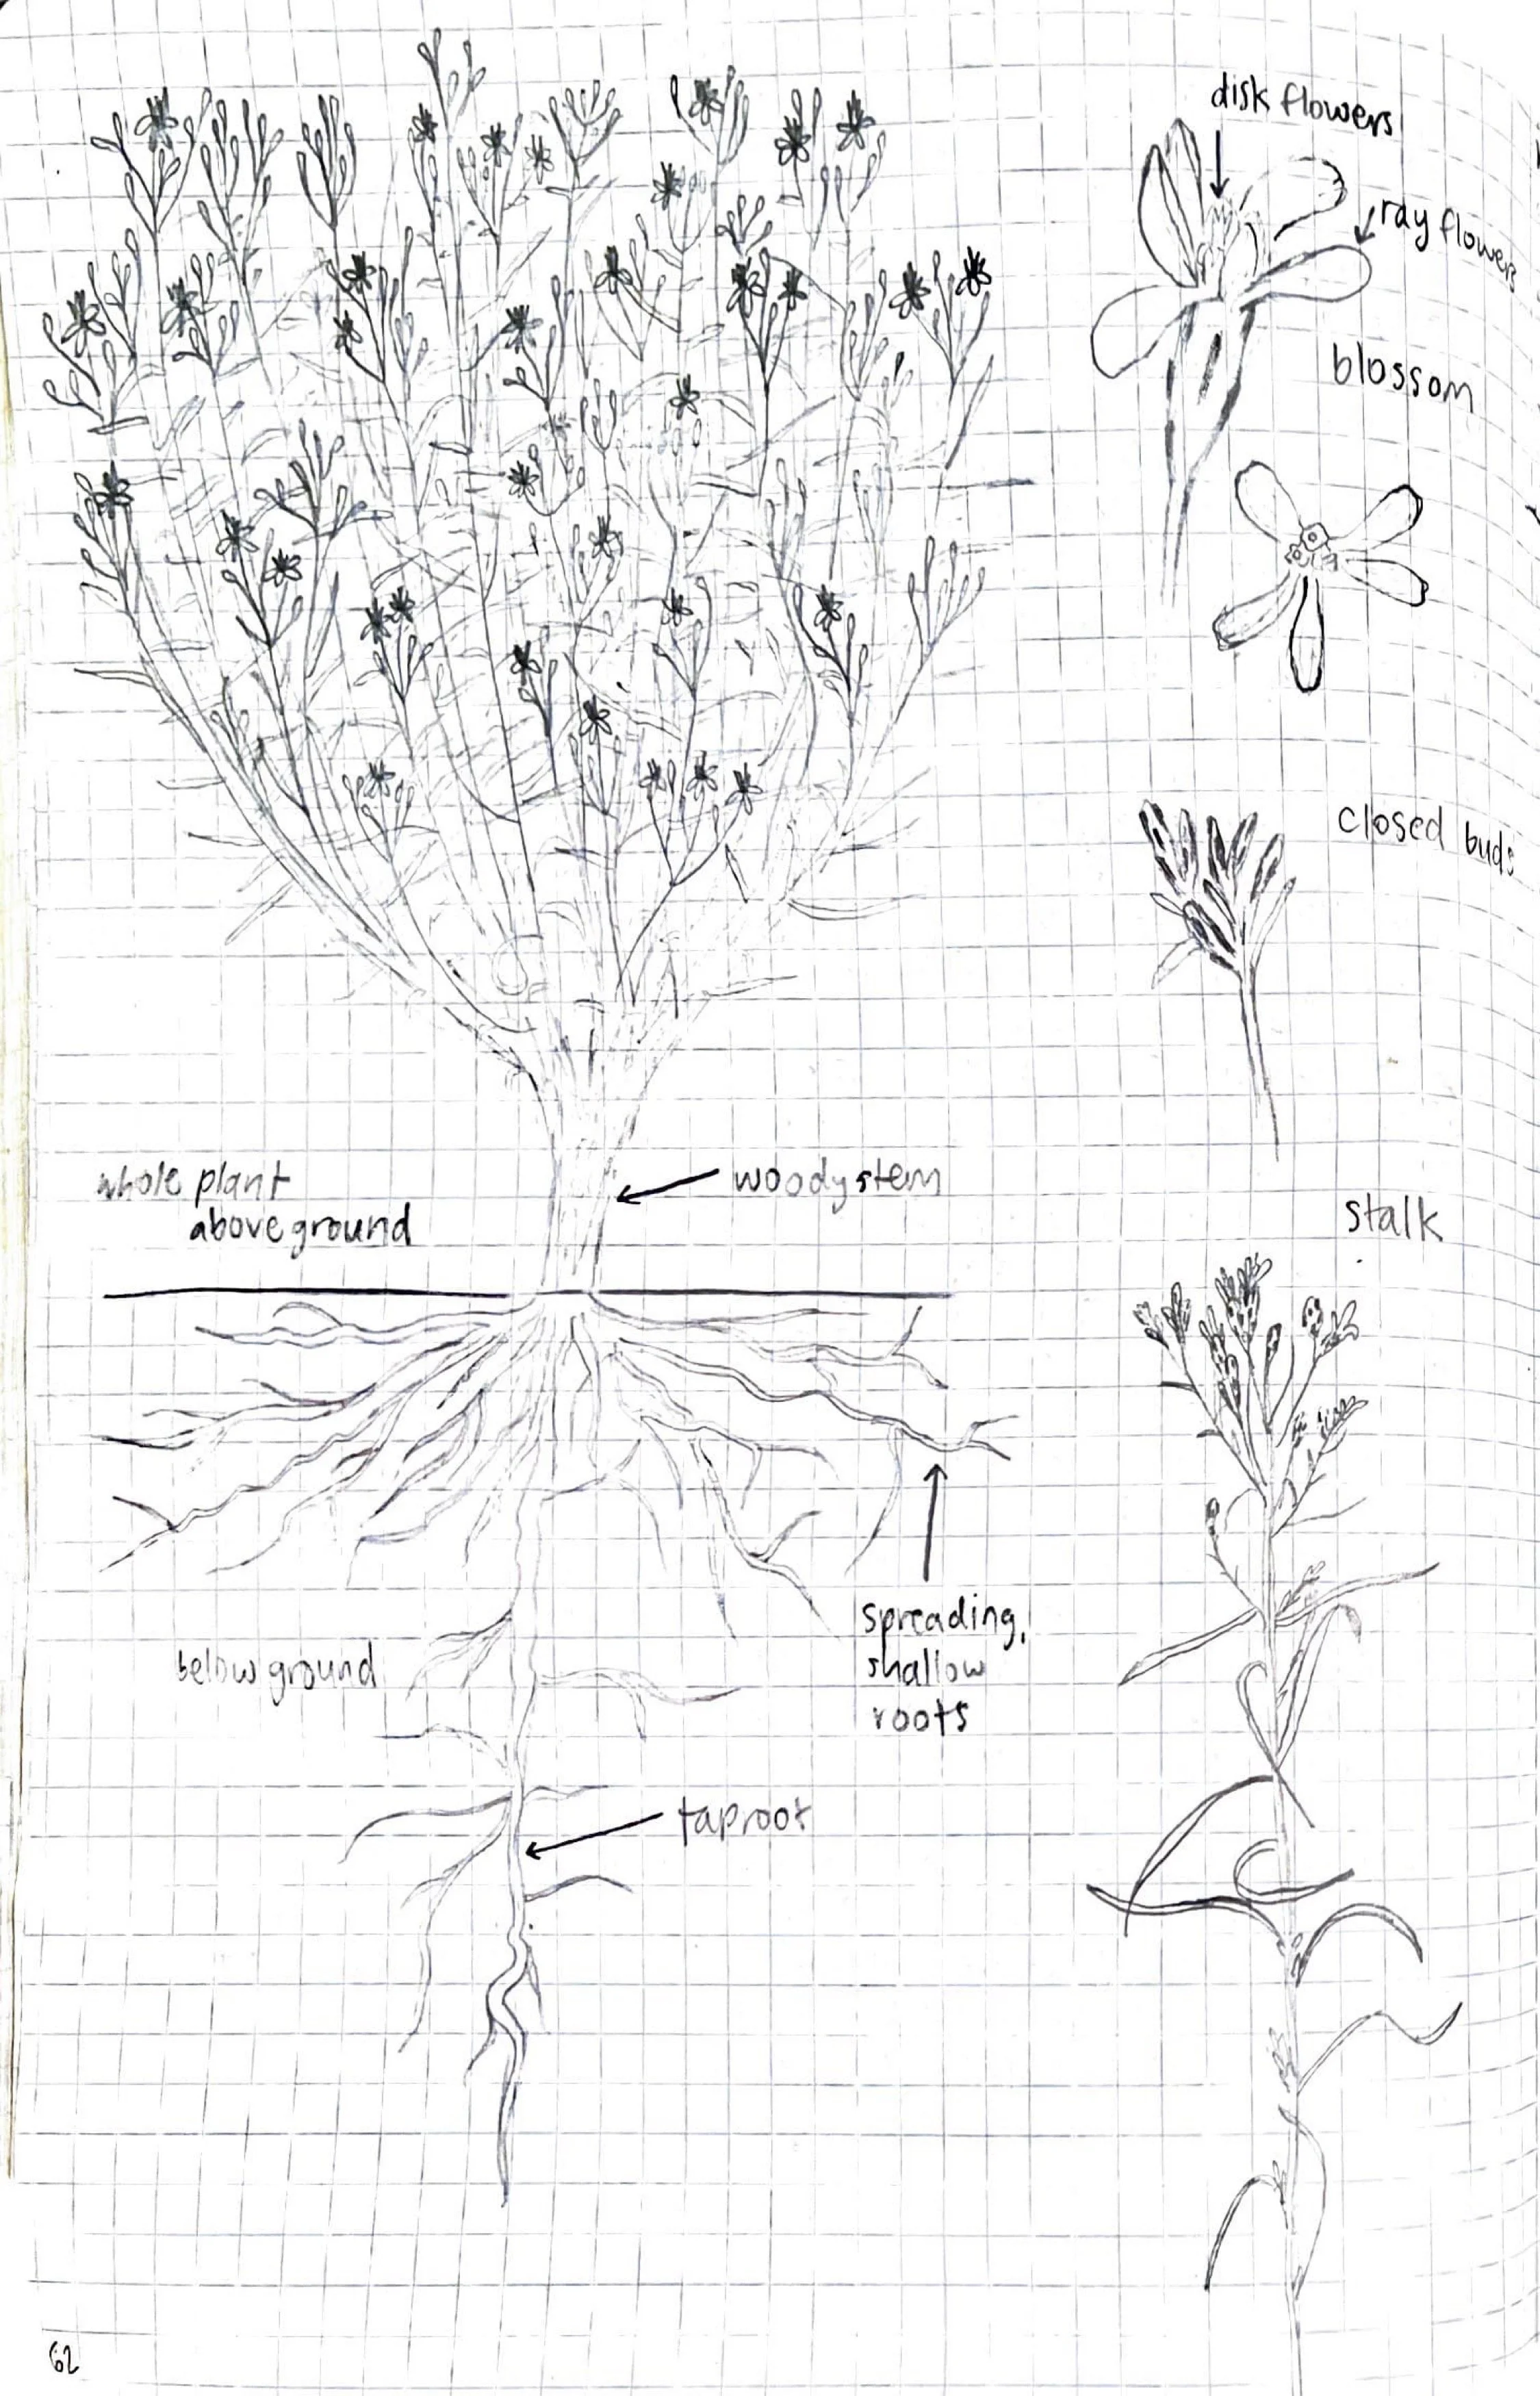 disk flowers
ray flowers
blossom
closed buds
whole plant
above ground
woody stem
stalk
spreading,
shallow
roots
below ground
taproot
62